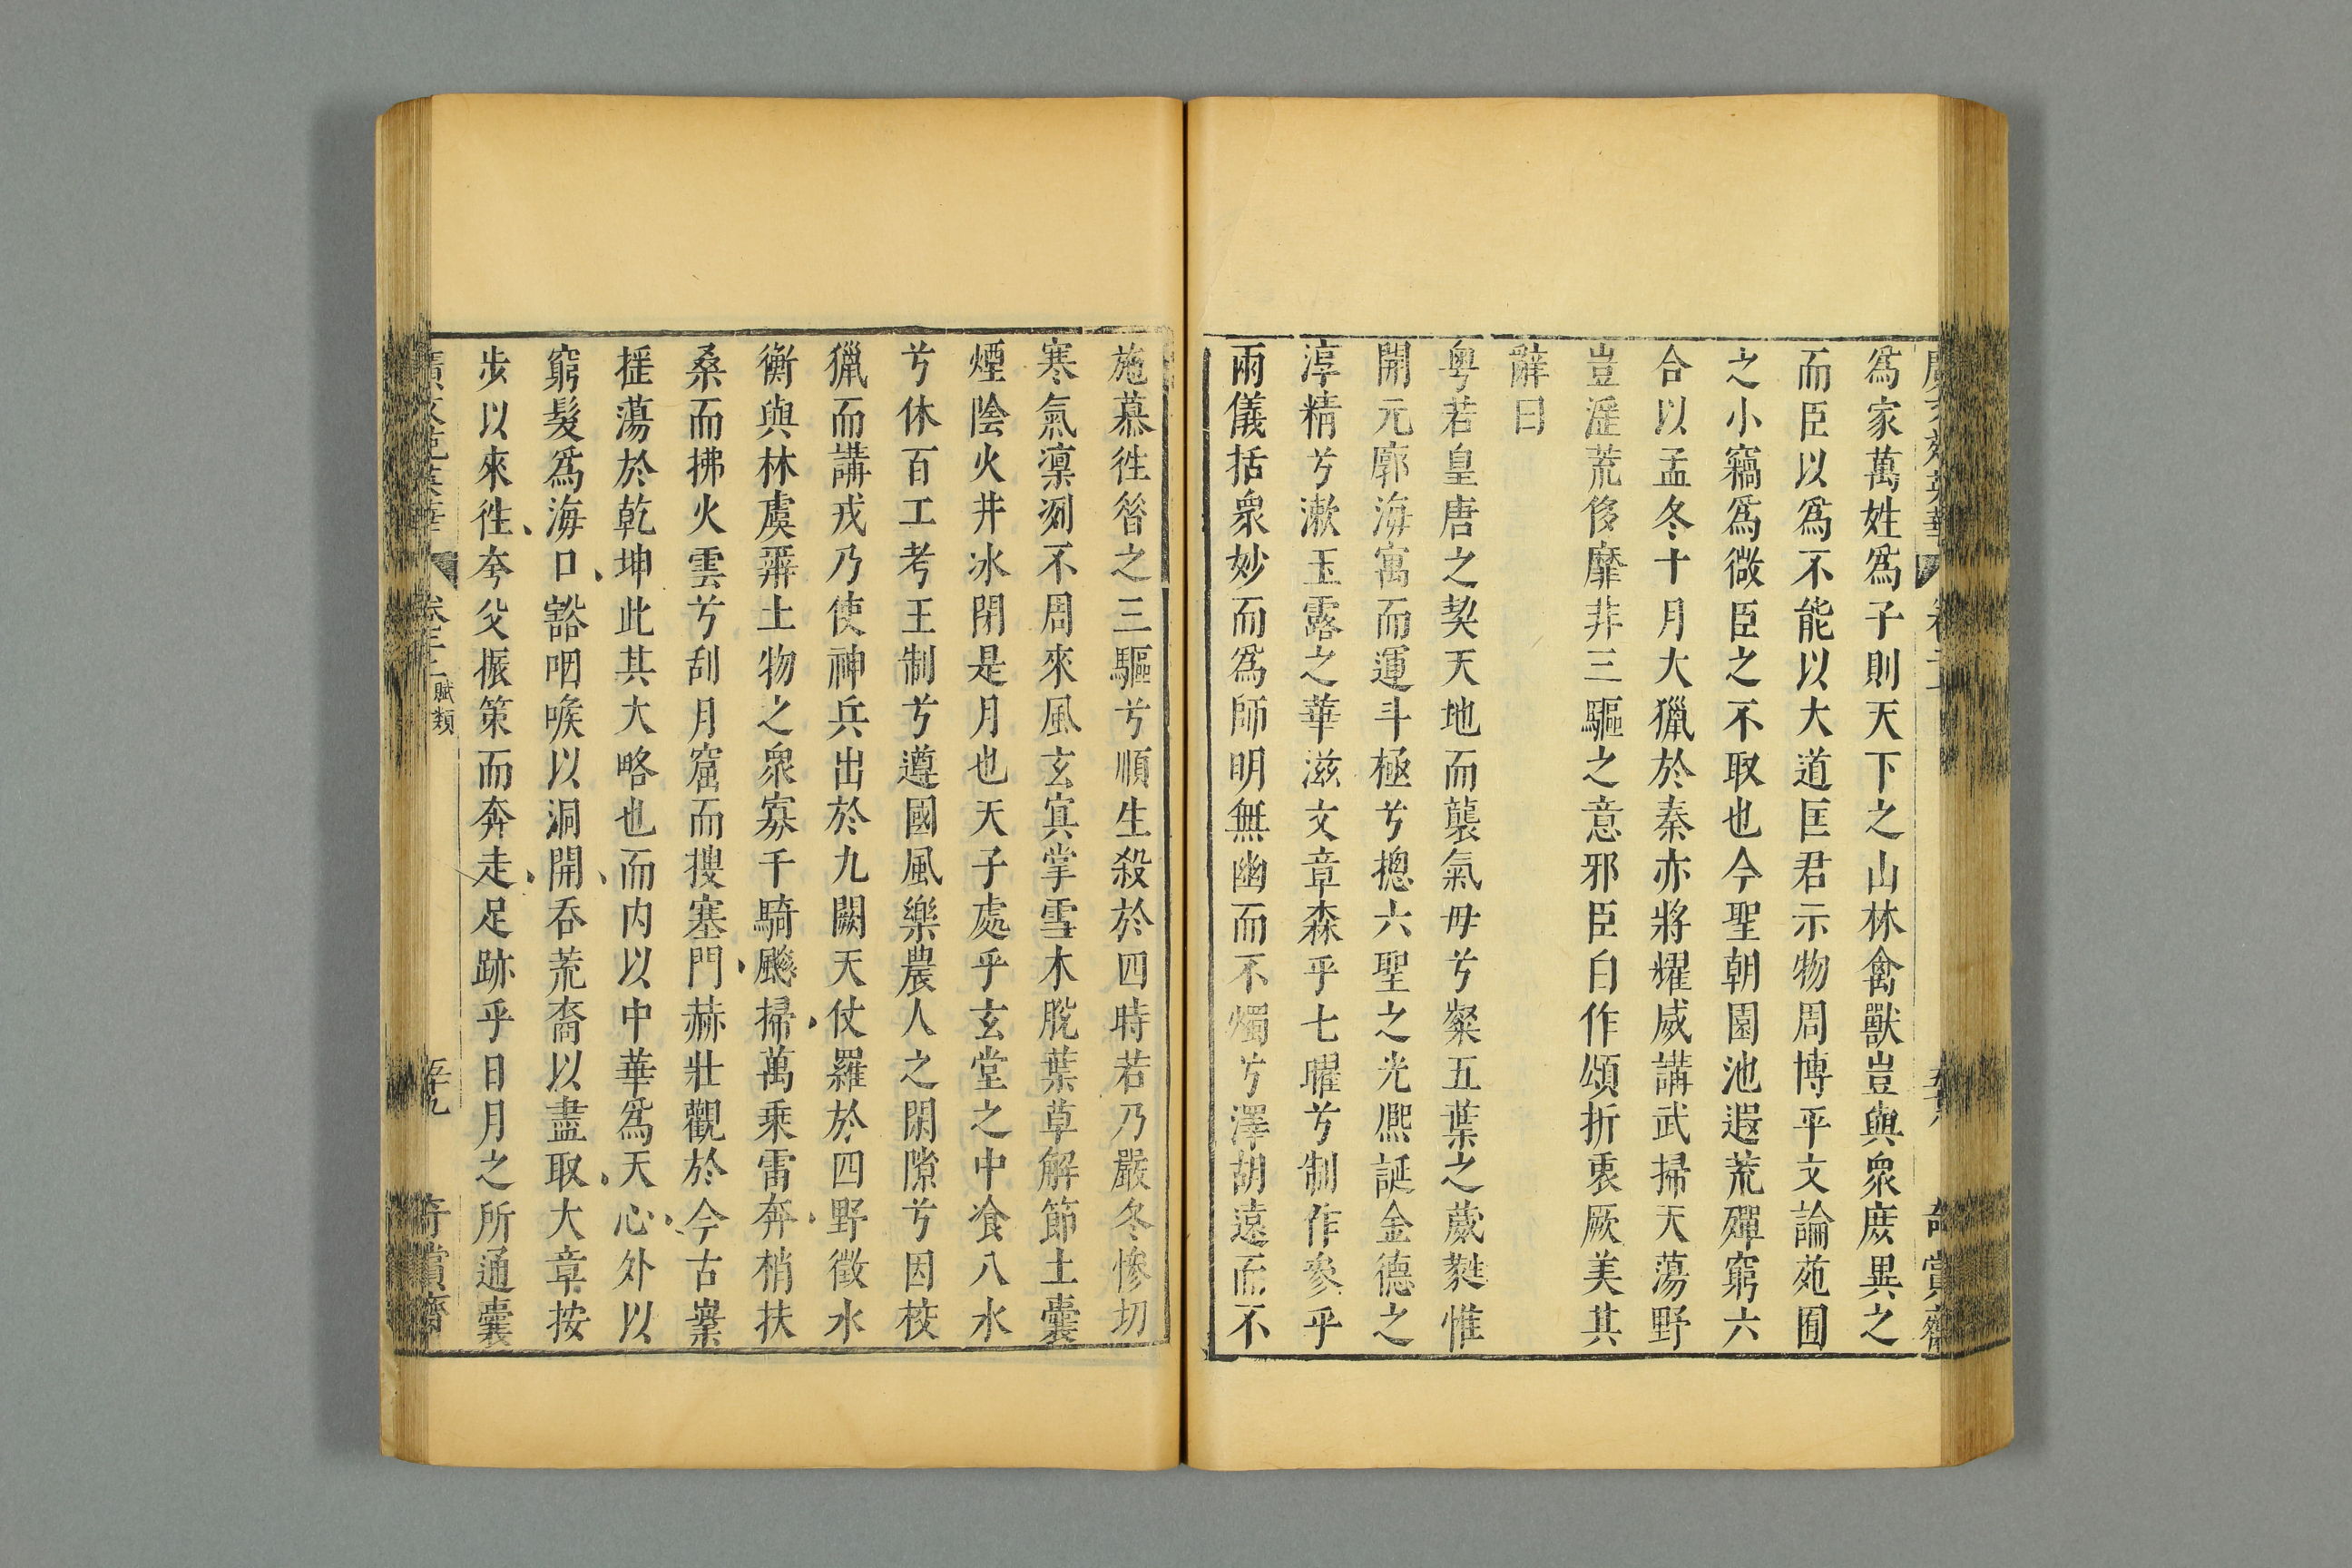 為家萬姓為子則天下之山林禽獸豈與衆庻異之
而臣以為不能以大道匡君示物周博平文論苑囿
之小竊為微臣之不取也今聖朝園池遐荒殫窮六
合以孟冬十月大獵於秦亦將耀威講武掃天蕩野
豈滛荒侈靡非三驅之意邪臣白作頌折衷厥美其
辭曰
粤若皇唐之契天地而襲氣毋兮粲五葉之葳蕤惟
開元廓海寓而運斗極兮摠六聖之光熈誕金德之
淳精兮漱玉露之華滋文章森乎七曜兮制作參乎
兩儀括衆妙而為師明無幽而不燭兮澤胡遠而不
施慕徃昝之三驅兮順生殺於四時若乃嚴冬慘切
寒氣凛冽不周來風玄寘掌雪木脫葉草解節土囊
煙陰火井冰閉是月也天子處乎玄堂之中飡八水
兮休百工考王制兮遵國風樂農人之閑隙兮因校
獵而講戎乃使神兵出於九闕天仗羅於四野徵水
衡與林虞辨土物之衆寡千騎飈掃萬乗雷奔梢扶
桑而拂火雲兮刮月窟而搜塞門赫壯觀於今古嶪
揺蕩於乾坤此其大略也而内以中華為天心外以
窮髮為海口豁咽喉以洞開吞荒裔以盡取大章按
步以來徃夸父振策而奔走足跡乎日月之所通囊
賦類